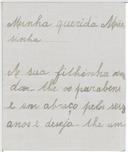 Minha querida Mai
sinha
A sua filhinha
dar-lhe os parabens
e um abraço pelo seus
anos e deseja-lhe um